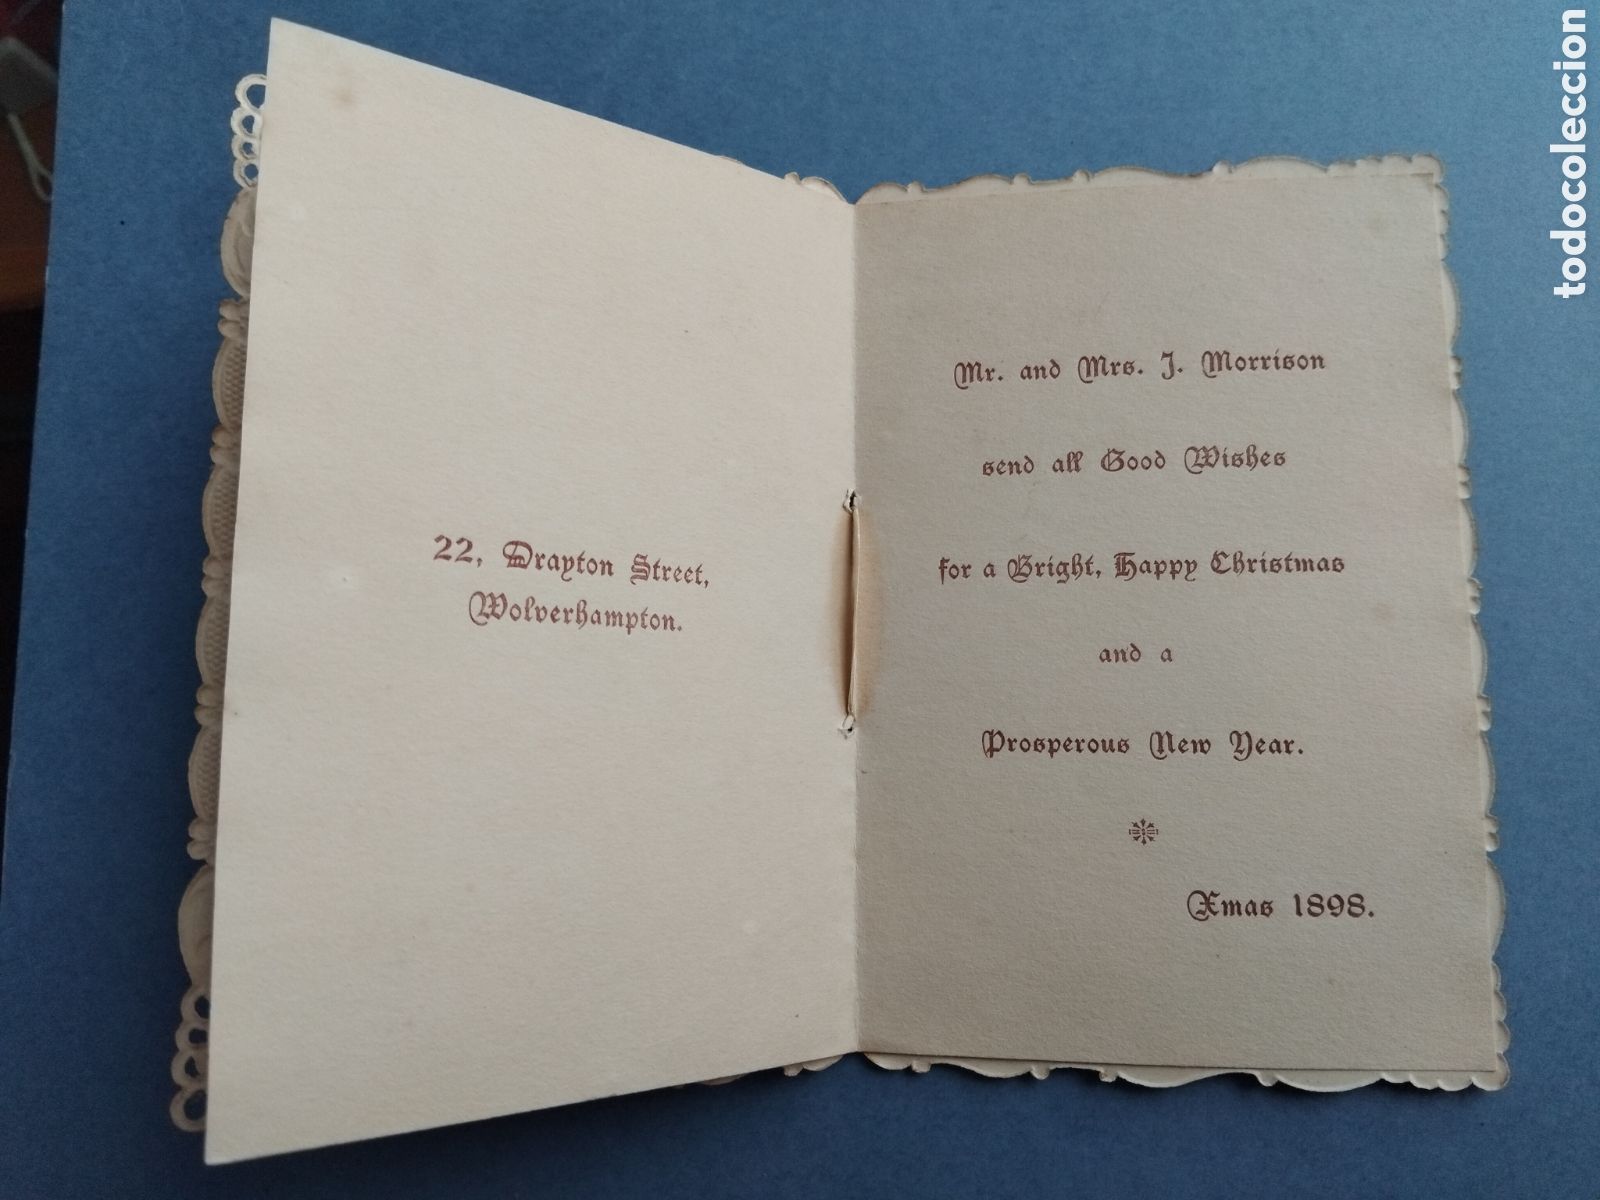 22, Drayton Street,
Wolverhampton.
Mr. and Mrs. J. Morrison
send all Good Wishes
for a Bright, Happy Christmas
and a
Prosperous New Year.
Xmas 1898.
todocoleccion